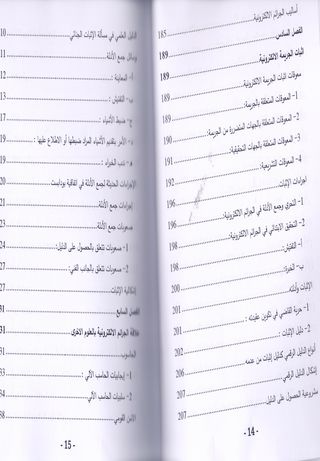 أساليب الجرائم الالكترونية 185
الفصل السادس 189
اثبات الجريمة الالكترونية 189
معوقات اثبات الجريمة الالكترونية 189
1- المعوقات المتعلقة بالجريمة: 189
2- المعوقات المتعلقة بالجهات المتضررة من الجريمة: 190
3- المعوقات المتعلقة بالجهات التحقيقية: 191
4- المعوقات التشريعية: 192
اجراءات الإثبات: 196
1- التحري وجمع الأدلة في الجرائم الالكترونية: 196
2- التحقيق الابتدائي في الجرائم الالكترونية: 198
أ- التفتيش: 198
ب- الخبرة: 200
الإثبات وأدلته 201
1- حرية القاضي في تكوين عقيدته: 201
2- دليل الإثبات: 202
أنواع الدليل الرقمي كدليل إثبات من عدمه 206
إشكال الدليل الرقمي 207
مشروعية الحصول على الدليل 207
- 14 -
الدليل العلمي في مسألة الإثبات الجنائي 10
وسائل جمع الأدلة 11
أ- المعاينة: 12
ب- التفتيش: 13
ج- ضبط الأشياء: 17
د- الأمر بتقديم الأشياء المراد ضبطها أو الاطلاع عليها: 19
هـ- ندب الخبراء: 19
الإجراءات الحديثة لجمع الأدلة في اتفاقية بودابست 20
إجراءات جمع الأدلة 21
صعوبات جمع الأدلة 24
1- صعوبات تتعلق بالحصول على الدليل: 24
2- صعوبات تتعلق بالجانب الفني: 27
إشكالية الإثبات 27
الفصل السابع 31
علاقة الجرائم الالكترونية بالعلوم الاخرى 31
الحاسوب 31
1- إيجابيات الحاسب الآلي: 32
2- سلبيات الحاسب الآلي: 34
الامن القومي 38
- 15 -